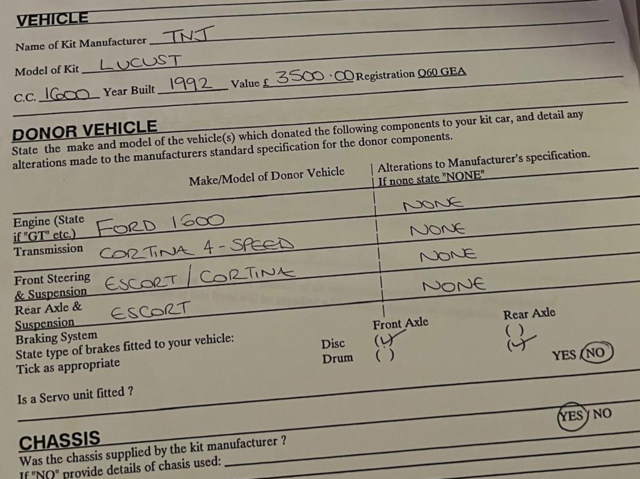 VEHICLE
Name of Kit Manufacturer TNJ
Model of Kit LUCUST
C.C. 1600 Year Built 1992 Value £ 3500.00 Registration Q60 GEA
DONOR VEHICLE
State the make and model of the vehicle(s) which donated the following components to your kit car, and detail any
alterations made to the manufacturers standard specification for the donor components.
Make/Model of Donor Vehicle Alterations to Manufacturer's specification.
If none state "NONE"
Engine (State
if "GT" etc.) FORD 1600 NONE
Transmission CORTINA 4-SPEED NONE
Front Steering
& Suspension ESCORT / CORTINA NONE
Rear Axle &
Suspension ESCORT NONE
Braking System
State type of brakes fitted to your vehicle: Front Axle Rear Axle
Tick as appropriate Disc (✓) ( )
Drum ( ) (✓)
Is a Servo unit fitted ? YES / NO
CHASSIS
Was the chassis supplied by the kit manufacturer ? YES / NO
If "NO" provide details of chasis used: